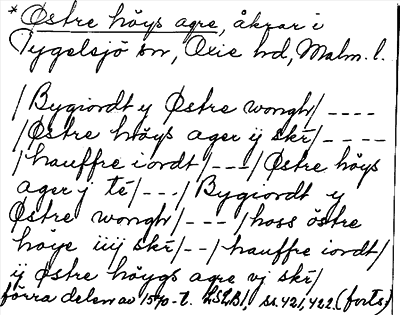 *Östre höys agre, åkrar i
Tygelsjö sn, Oxie hd, Malm. l.
/Bygiordt y Östre wongh/ ----
/Östre höys ager ij skr̄/ ----
/hauffre iordt/ ---/Östre höys
ager j tē/---/Bygiordt y
Östre wongh/---/hoss östre
höye iiij skr̄/--/hauffre iordt/
ij Östre höygs agre vj skr̄/
förra delen av 1570-t. LSLB1, ss. 421, 422. (forts)